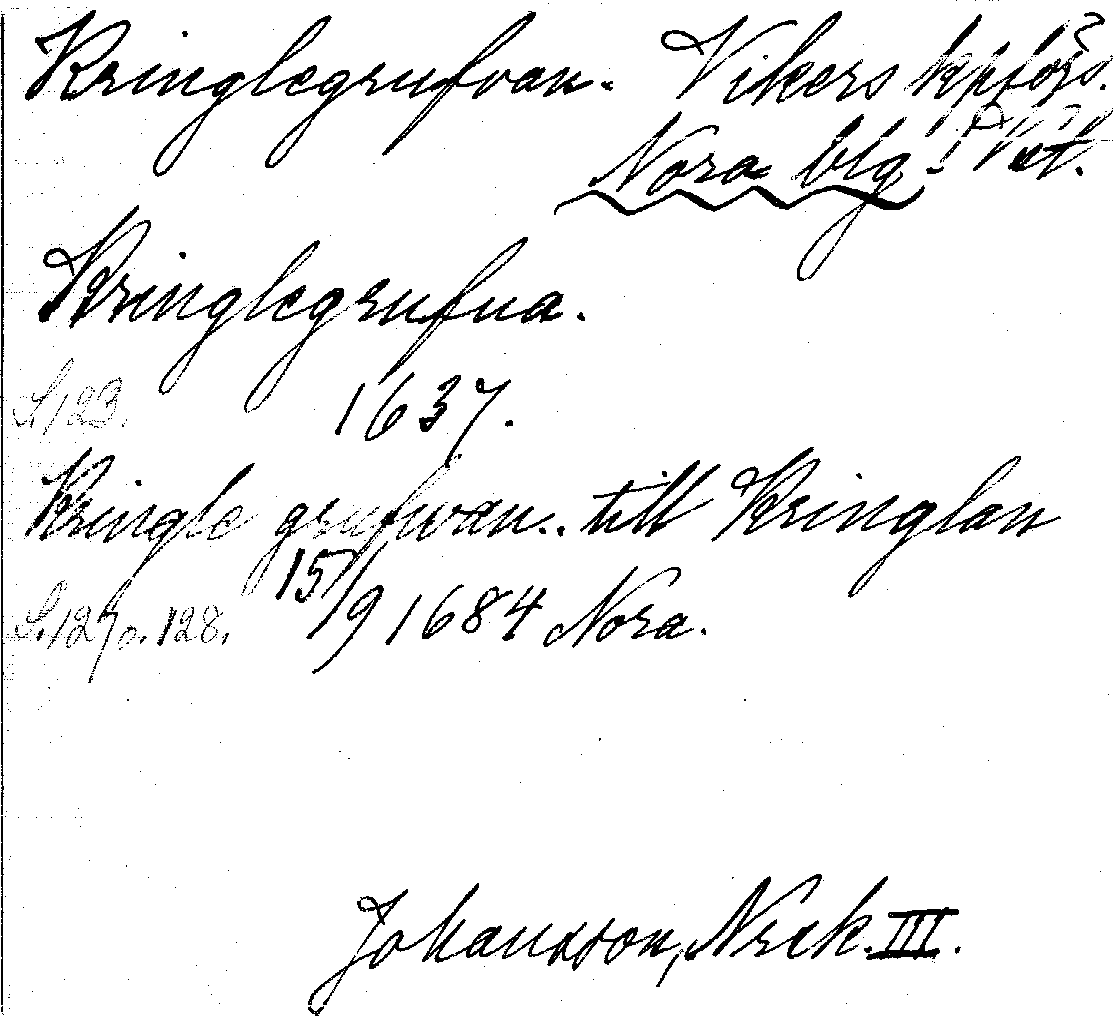 Kringlegrufvan. Vikers kpförs.
Nora blg. Vst.
Kringlegrufua.
S. 123. 1637.
Kringle grufwan.. till Kringlan
S. 127 o. 128. 15/9 1684 Nora.
Johansson, Nrck. III.